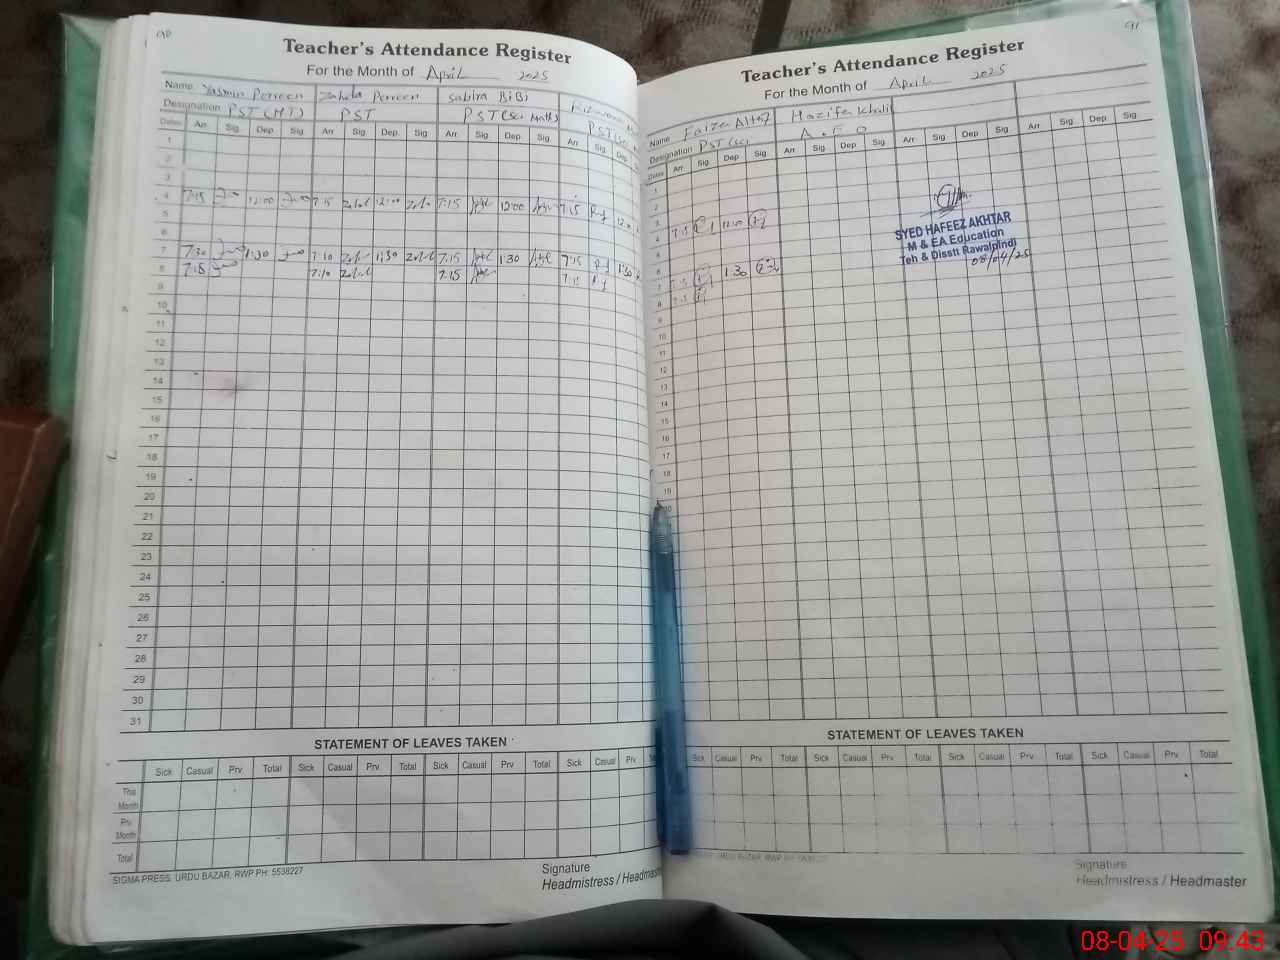 90
Teacher's Attendance Register
For the Month of April 2025
Name Yasmin Perveen Zahida Perveen Sabira BiBi
Designation PST (HT) PST PST (Sci Math) PST (Sci
Dates Arr Sig Dep Sig Arr Sig Dep Sig Arr Sig Dep Sig Arr Sig Dep
1
2
3
4 7:15 12:00 7:15 12:00 7:15 12:00 7:15
5
6
7 7:30 1:30 7:10 1:30 7:15 1:30 7:15 1:30
8 7:15 7:10 7:15 7:15
9
10
11
12
13
14
15
16
17
18
19
20
21
22
23
24
25
26
27
28
29
30
31
STATEMENT OF LEAVES TAKEN
Sick Casual Prv Total Sick Casual Prv Total Sick Casual Prv Total Sick Casual Prv
This Month
Prv Month
Total
SIGMA PRESS. URDU BAZAR, RWP PH: 5538227
Signature
Headmistress / Headmaster
91
Teacher's Attendance Register
For the Month of April 2025
Name Faiza Altaf Hazifa Khalil
Designation PST (Sci A.E.O
Dates Arr Sig Dep Sig Arr Sig Dep Sig Arr Sig Dep Sig Arr Sig Dep Sig
1
2
3
4 7:15 12:00
5
6
7 7:15 1:30
8 7:15
9
10
11
12
13
14
15
16
17
18
19
20
SYED HAFEEZ AKHTAR
M & EA Education
Teh & Disstt Rawalpindi
08/04/25
STATEMENT OF LEAVES TAKEN
Sick Casual Prv Total Sick Casual Prv Total Sick Casual Prv Total Sick Casual Prv Total
URDU BAZAR, RWP PH: 5538227
Signature
Headmistress / Headmaster
08-04-25 09:43